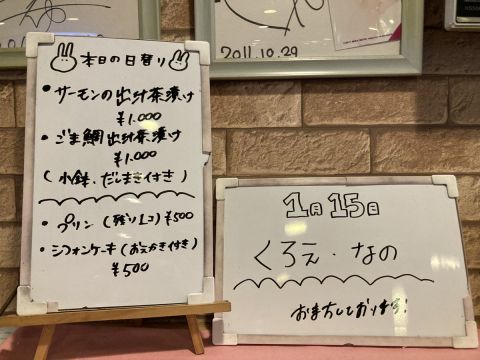 2011.10.29
本日の日替り
・サーモンの出汁茶漬け
¥1.000
・ごま鯛出汁茶漬け
¥1.000
(小鉢、だしまき付き)
・プリン(残り1コ)¥500
・シフォンケーキ(おえかき付き)
¥500
1月15日
くろえ・なの
お待ちしております!